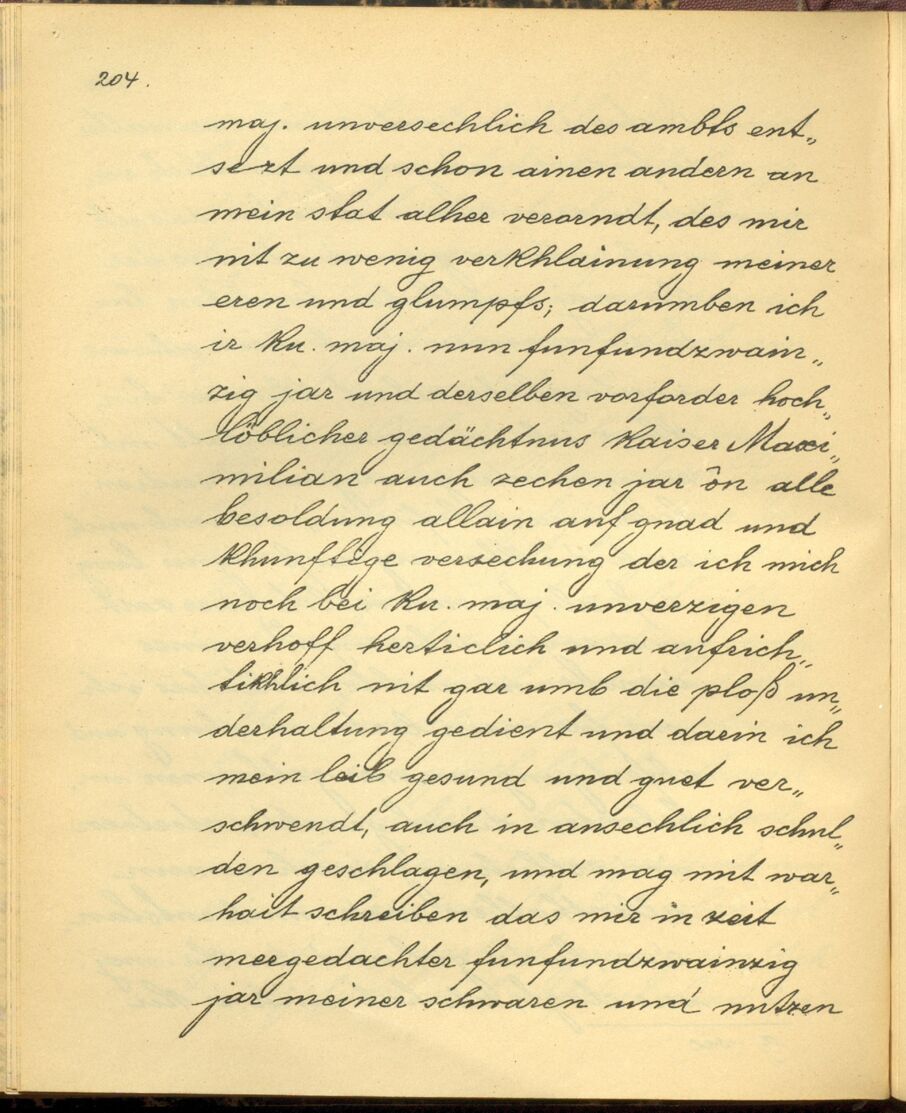 204.
maj. unversechlich des ambts ent„
sezt und schon ainen andern an
mein stat alher verorndt, des mir
nit zu wenig verkhlainung meiner
eren und glumpfs; darumben ich
ir ku. maj. nun funfundzwain„
zig jar und derselben vorforder hoch„
löblicher gedächtnus kaiser Maxi„
milian auch zechen jar ôn alle
besoldung allain auf gnad und
khunftige versechung der ich mich
noch bei ku. maj. unverzigen
verhoff herticlich und aufrich„
tikhlich nit gar umb die ploß un„
derhaltung gedient und darin ich
mein leib gesund und guet ver„
schwendt, auch in ansechlich schul„
den geschlagen, und mag mit war„
hait schreiben das mir in zeit
mergedachter funfundzwainzig
jar meiner schwaren und nutzen